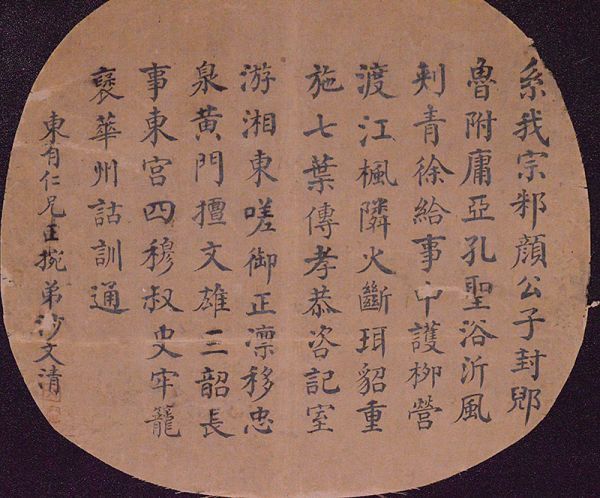 系我宗邾顏公子封郳
魯附庸亞孔聖浴沂風
刺青徐給事中護柳營
渡江楓隣火斷珥貂重
施七葉傳孝恭咨記室
游湘東嗟御正凛移忠
泉黃門擅文雄二韶長
事東宮四穆叔史牢籠
褒華州詁訓通
東有仁兄正捥弟沙文清